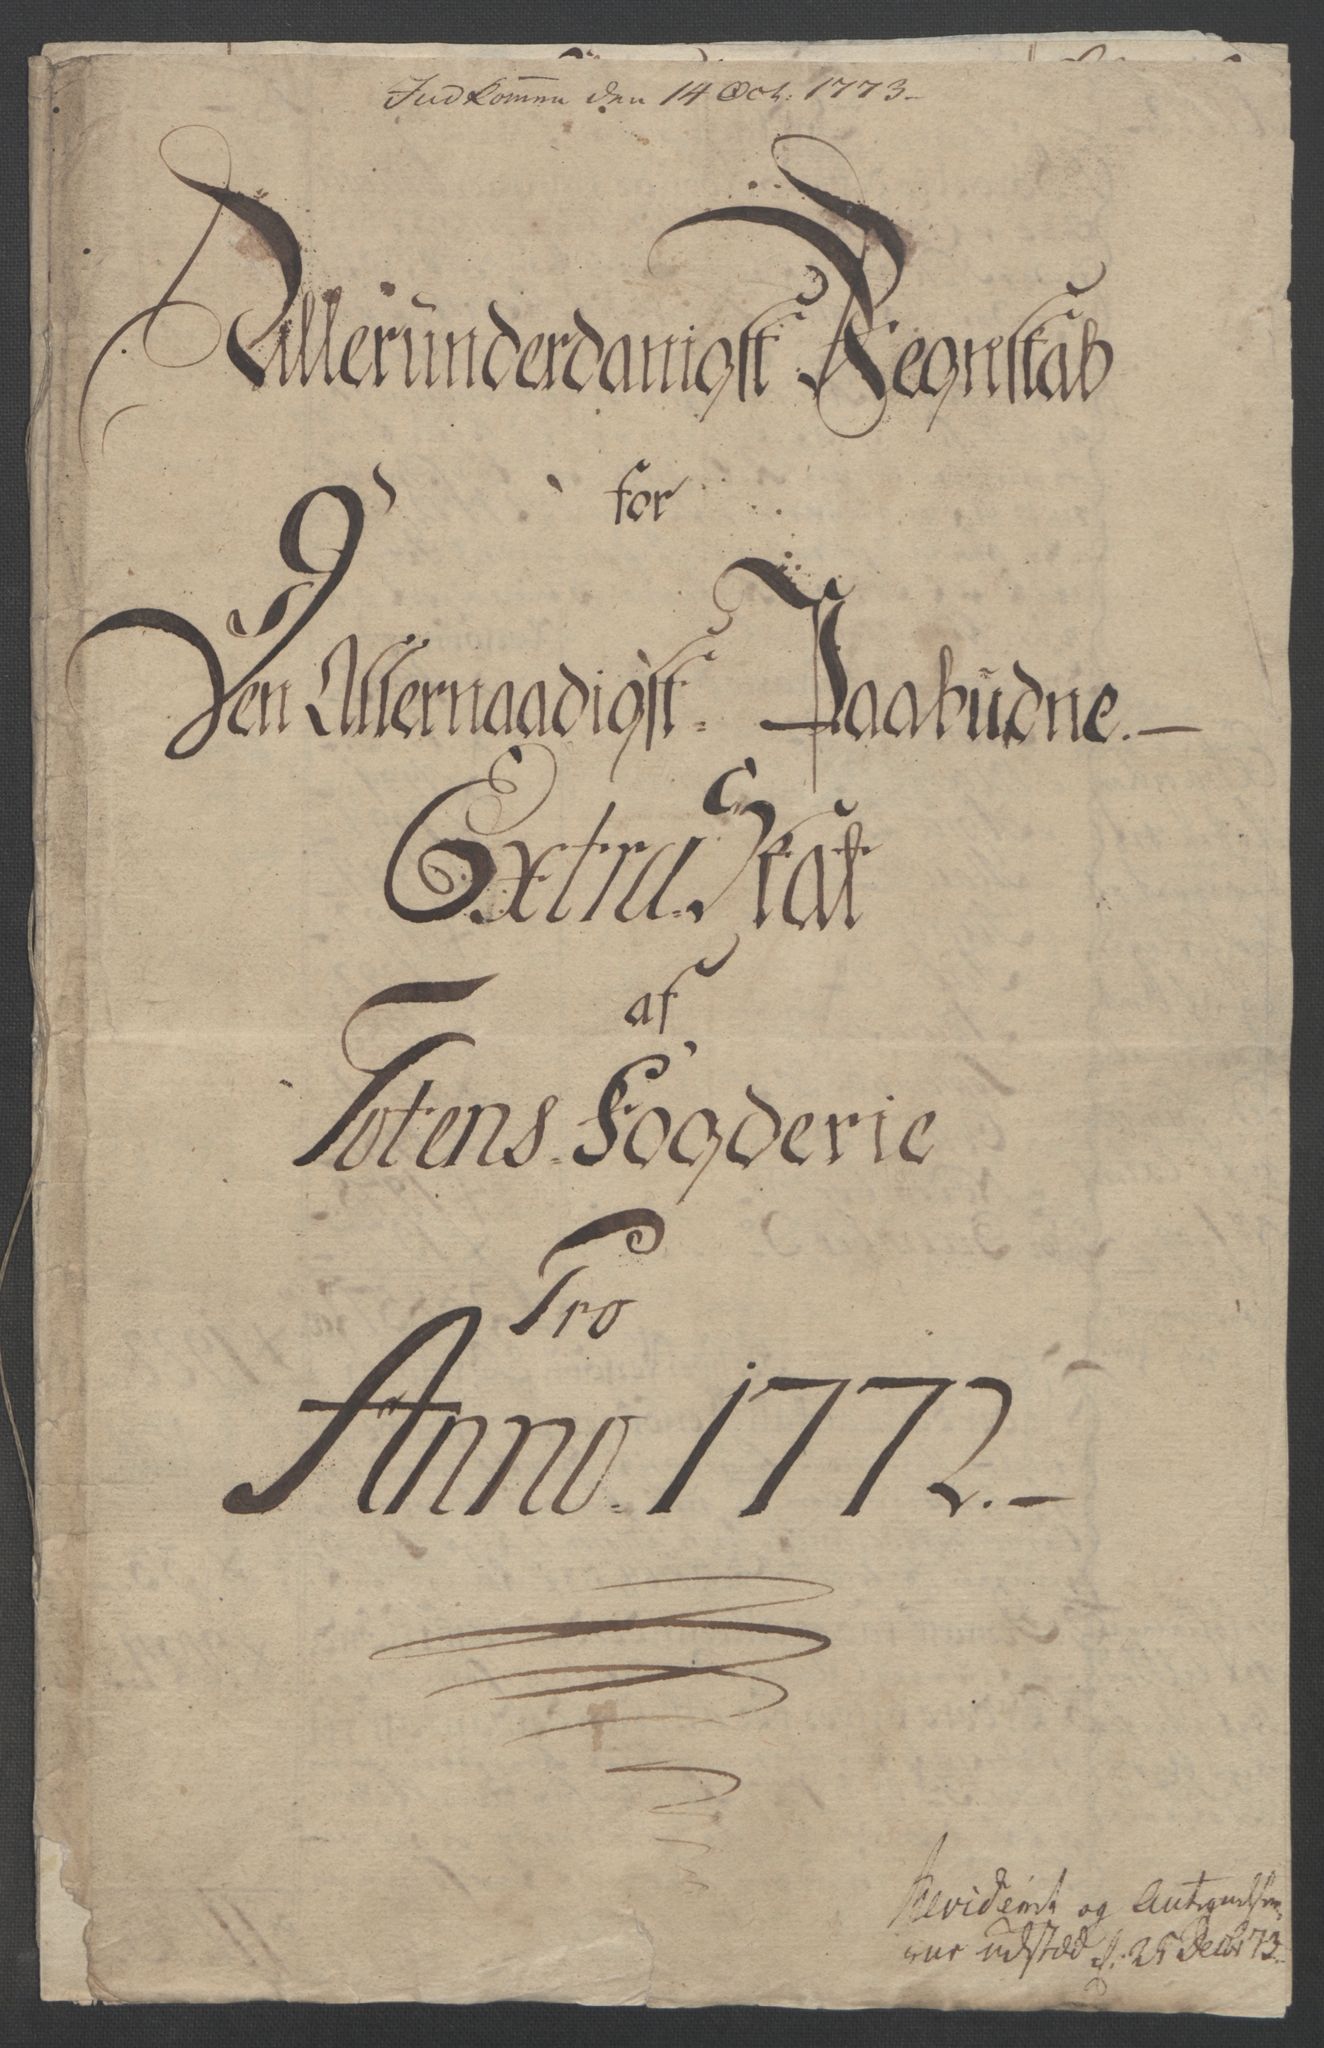 Indkommen den 14 Oct: 1773-
Alleründerdanigst Regnskab
for
Den Allernaadigst Paabüdne.-
Extra Skat
af
Totens Fogderie
Pro
Anno. 1772.-
Revideret og Antegnelser-
ne udstæd d. 28 Decbr 73.